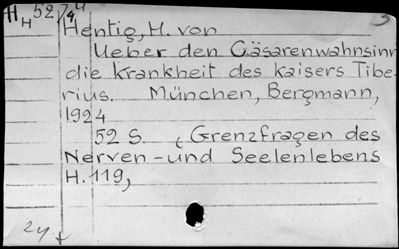 H H 52/44
Hentig, H. von
Ueber den Cäsarenwahnsinn
die Krankheit des Kaisers Tibe-
rius. München, Bergmann,
1924
52 S. (Grenzfragen des
Nerven-und Seelenlebens
H. 119,
24